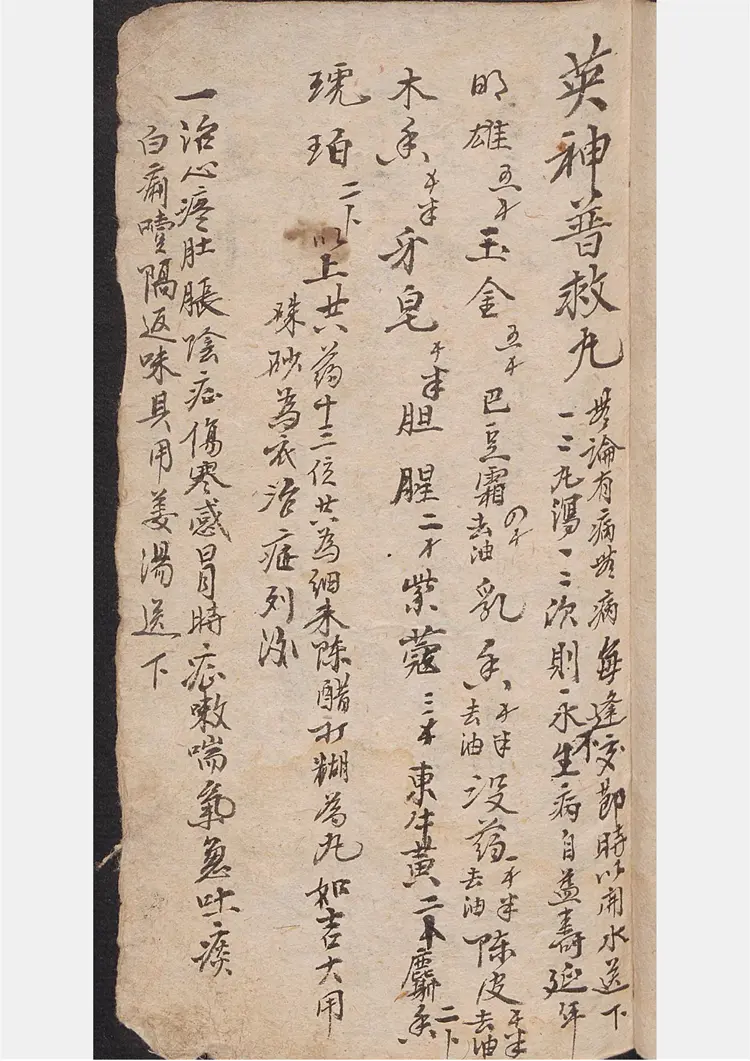 英神普救丸
無論有病無病每逢交節時以開水送下
一二丸湯一二次則永不生病自益壽延年
明雄五 玉金五 巴豆霜去油 乳香去油 半 没药去油 半 陈皮去油 半
木香 半 牙皂 半 胆腥二 紫蔻三 東牛黄二 麝香二卜
琥珀二卜 以上共药十三位共為细末陈醋打糊為丸如吉大用
硃砂為衣治症列汾
一治心疼肚脹陰症傷寒感冒時症嗽喘氣急吐痰
白痢噎隔返味具用姜湯送下